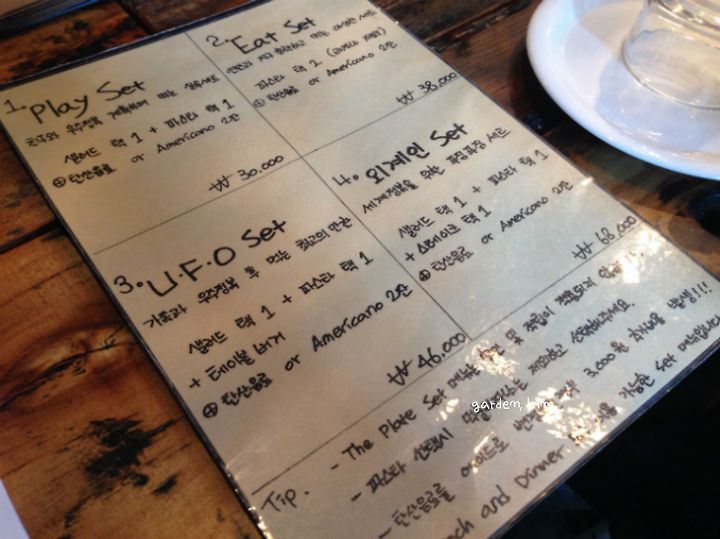 1. Play Set
친구와 우주정복 계획하며 먹는
샐러드 택 1 + 파스타 택 1
⊕ 탄산음료 or Americano 2잔
₩ 30.000
2. Eat Set
먹는
파스타 택 1
⊕ 탄산음료 or Americano 2잔
₩ 38.000
3. U.F.O Set
가족과 우주정복 후 먹는 최고의 만찬
샐러드 택 1 + 파스타 택 1
+ 테이블 버거
⊕ 탄산음료 or Americano 2잔
₩ 46.000
4. 외계인 Set
세계정복을 위한 짜장짜장 세트
샐러드 택 1 + 파스타 택 1
+ 스테이크 택 1
⊕ 탄산음료 or Americano 2잔
₩ 68.000
Tip. - The Plate Set 메뉴는 및 적립이 적용되지
- 파스타 선택시 제외하고 선택해주세요.
- 탄산음료를 에이드로 3.000원 추가금 발생!!!
and Dinner 가능한 Set 메뉴입니다
garden, kim